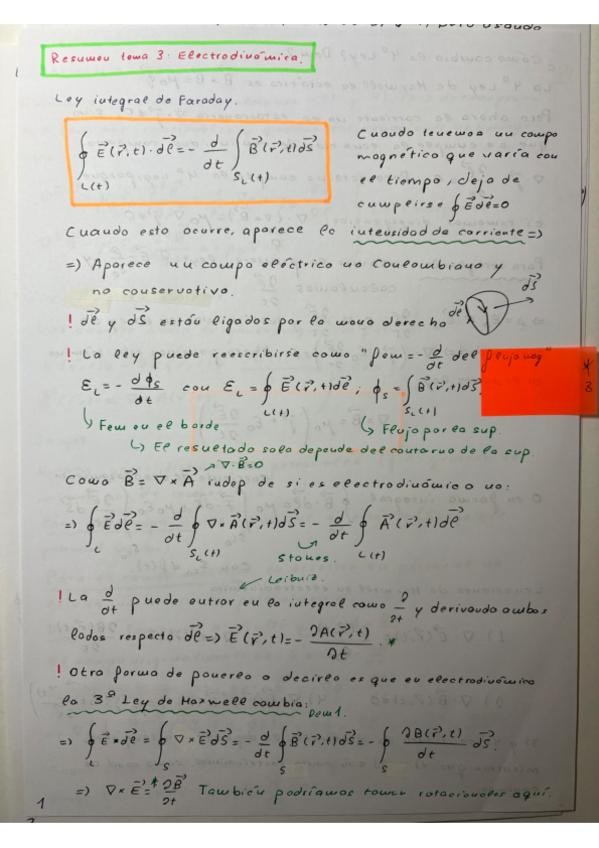 Resumen tema 3: Electrodinámica.
Ley integral de Faraday.
∮_{L(t)} E⃗(r⃗,t)·dl⃗ = - d/dt ∫_{S_L(t)} B⃗(r⃗,t)dS⃗
Cuando tenemos un campo
magnético que varía con
el tiempo, deja de
cumplirse ∮E⃗dl⃗=0
Cuando esto ocurre, aparece la intensidad de corriente =>
=> Aparece un campo eléctrico no Coulombiano y
no conservativo.
dl⃗ dS⃗
! dl⃗ y dS⃗ están ligados por la mano derecha
! La ley puede reescribirse como "fem = - d/dt del flujo mag"
ε_L = - dϕ_S/dt con ε_L = ∮_{L(t)} E⃗(r⃗,t)dl⃗ ; ϕ_S = ∫_{S_L(t)} B⃗(r⃗,t)dS⃗
* 3
↳ Fem en el borde ↳ Flujo por la sup.
↳ El resultado solo depende del contorno de la sup.
↗ ∇·B⃗=0
Como B⃗ = ∇×A⃗ indep de si es electrodinámica o no:
=> ∮_L E⃗dl⃗ = - d/dt ∫_{S_L(t)} ∇×A⃗(r⃗,t)dS⃗ = - d/dt ∮_{L(t)} A⃗(r⃗,t)dl⃗
Stokes.
Leibniz.
! La d/dt puede entrar en la integral como ∂/∂t y derivando ambos
lados respecto dl⃗ => E⃗(r⃗,t) = - ∂A(r⃗,t)/∂t . *
! Otra forma de ponerlo o decirlo es que en electrodinámica
la 3ª Ley de Maxwell cambia:
Dem 1.
=> ∮_L E⃗·dl⃗ = ∮_S ∇×E⃗dS⃗ = - d/dt ∮_S B⃗(r⃗,t)dS⃗ = - ∮_S ∂B(r⃗,t)/dt dS⃗
=> ∇×E⃗ =* ∂B⃗/∂t También podríamos tomar rotacionales aquí.
1